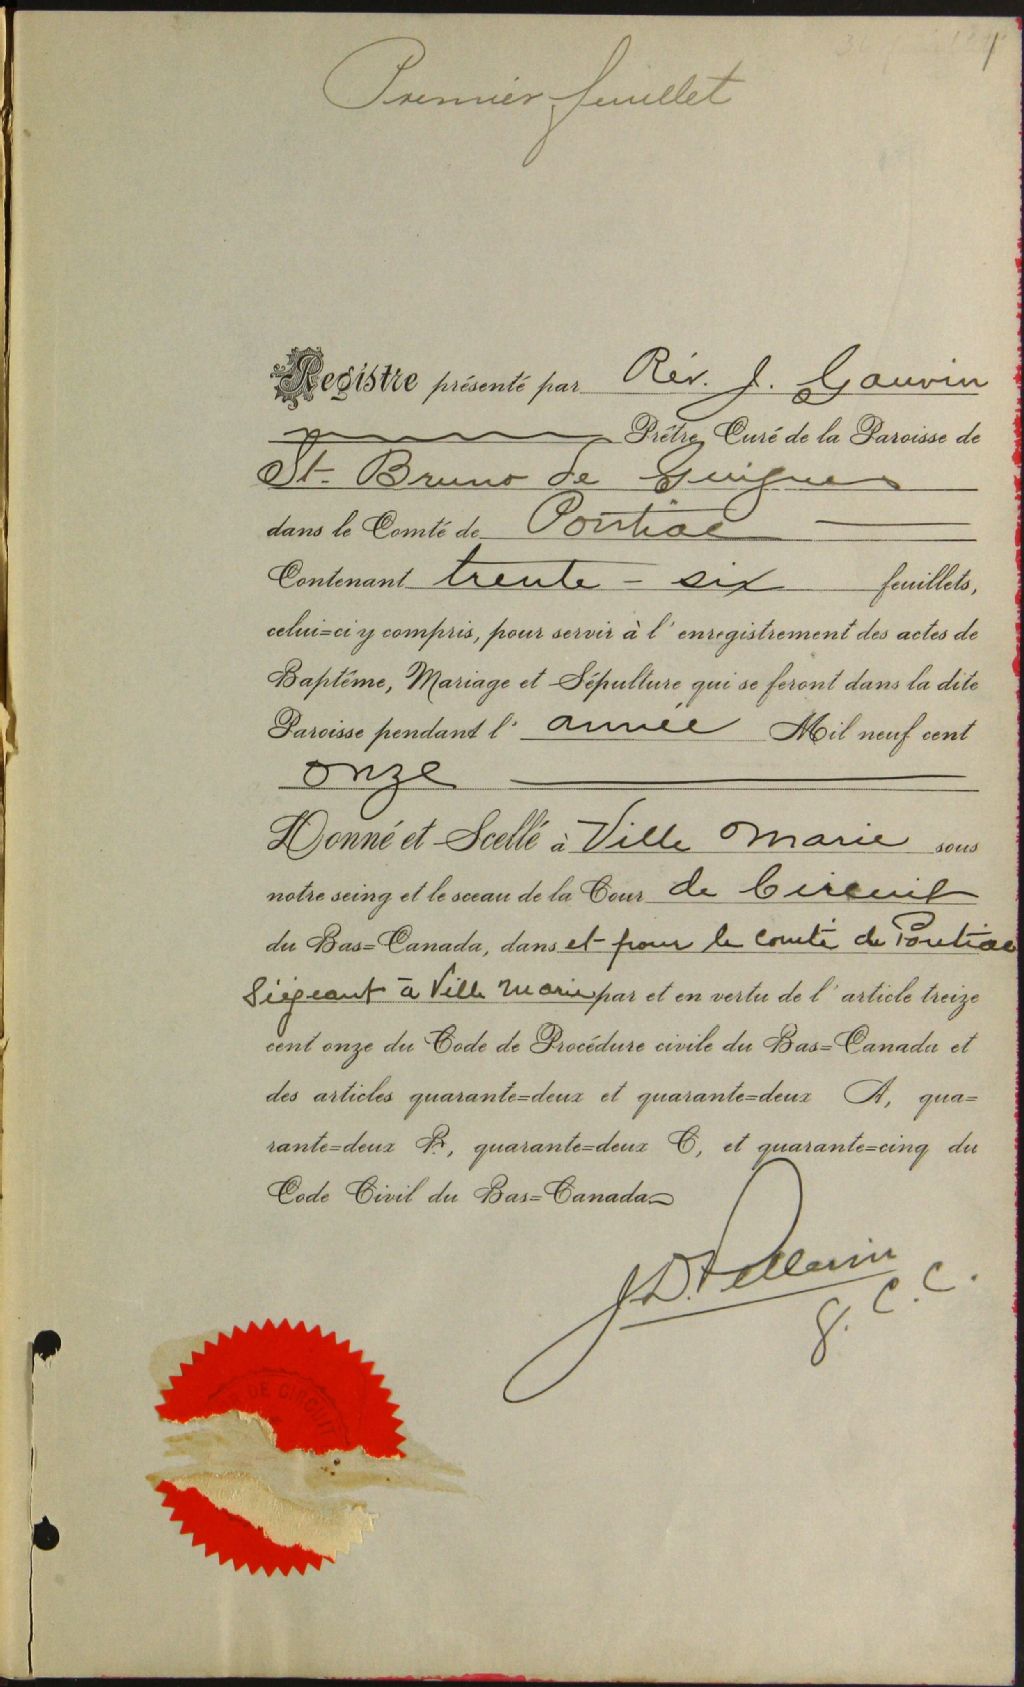 1
Premier feuillet
Registre présenté par Rév. J. Gauvin
Prêtre, Curé de la Paroisse de
St. Bruno de Guigues
dans le Comté de Pontiac
Contenant trente - six feuillets,
celui=ci y compris, pour servir à l' enregistrement des actes de
Baptême, Mariage et Sépulture qui se feront dans la dite
Paroisse pendant l' année Mil neuf cent
onze
Donné et Scellé à Ville Marie sous
notre seing et le sceau de la Cour de Circuit
du Bas=Canada, dans et pour le comté de Pontiac
Siégeant à Ville Marie par et en vertu de l' article treize
cent onze du Code de Procédure civile du Bas=Canada et
des articles quarante=deux et quarante=deux A, qua=
rante=deux B, quarante=deux C, et quarante=cinq du
Code Civil du Bas=Canada
J.D. Pellerin
g. C. C.
DE CIRCUIT